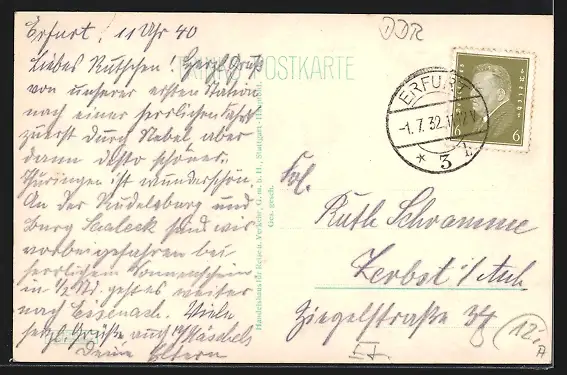 Erfurt, 11 Uhr 40
Liebes Ruthchen! Herzl. Gruß
von unserer ersten Station
nach einer herrlichen Fahrt
zuerst durch Nebel aber
dann desto schöner.
Thüringen ist wunderschön.
An der Rudelsburg und
Burg Saaleck sind wir
vorbeigefahren bei
herrlichem Sonnenschein
in ½ Std. geht es weiter
nach Eisenach. Viele
herzl. Grüße auch
Deine Eltern
POSTKARTE
DDR
ERFURT
-1.7.32.
* 3
6 6
Frl.
Ruth Schramme
Zerbst i/Anh
Ziegelstraße 34
12.-
A
Handelshaus für Reise u. Verkehr, G. m. b. H., Stuttgart -
Ges. gesch.